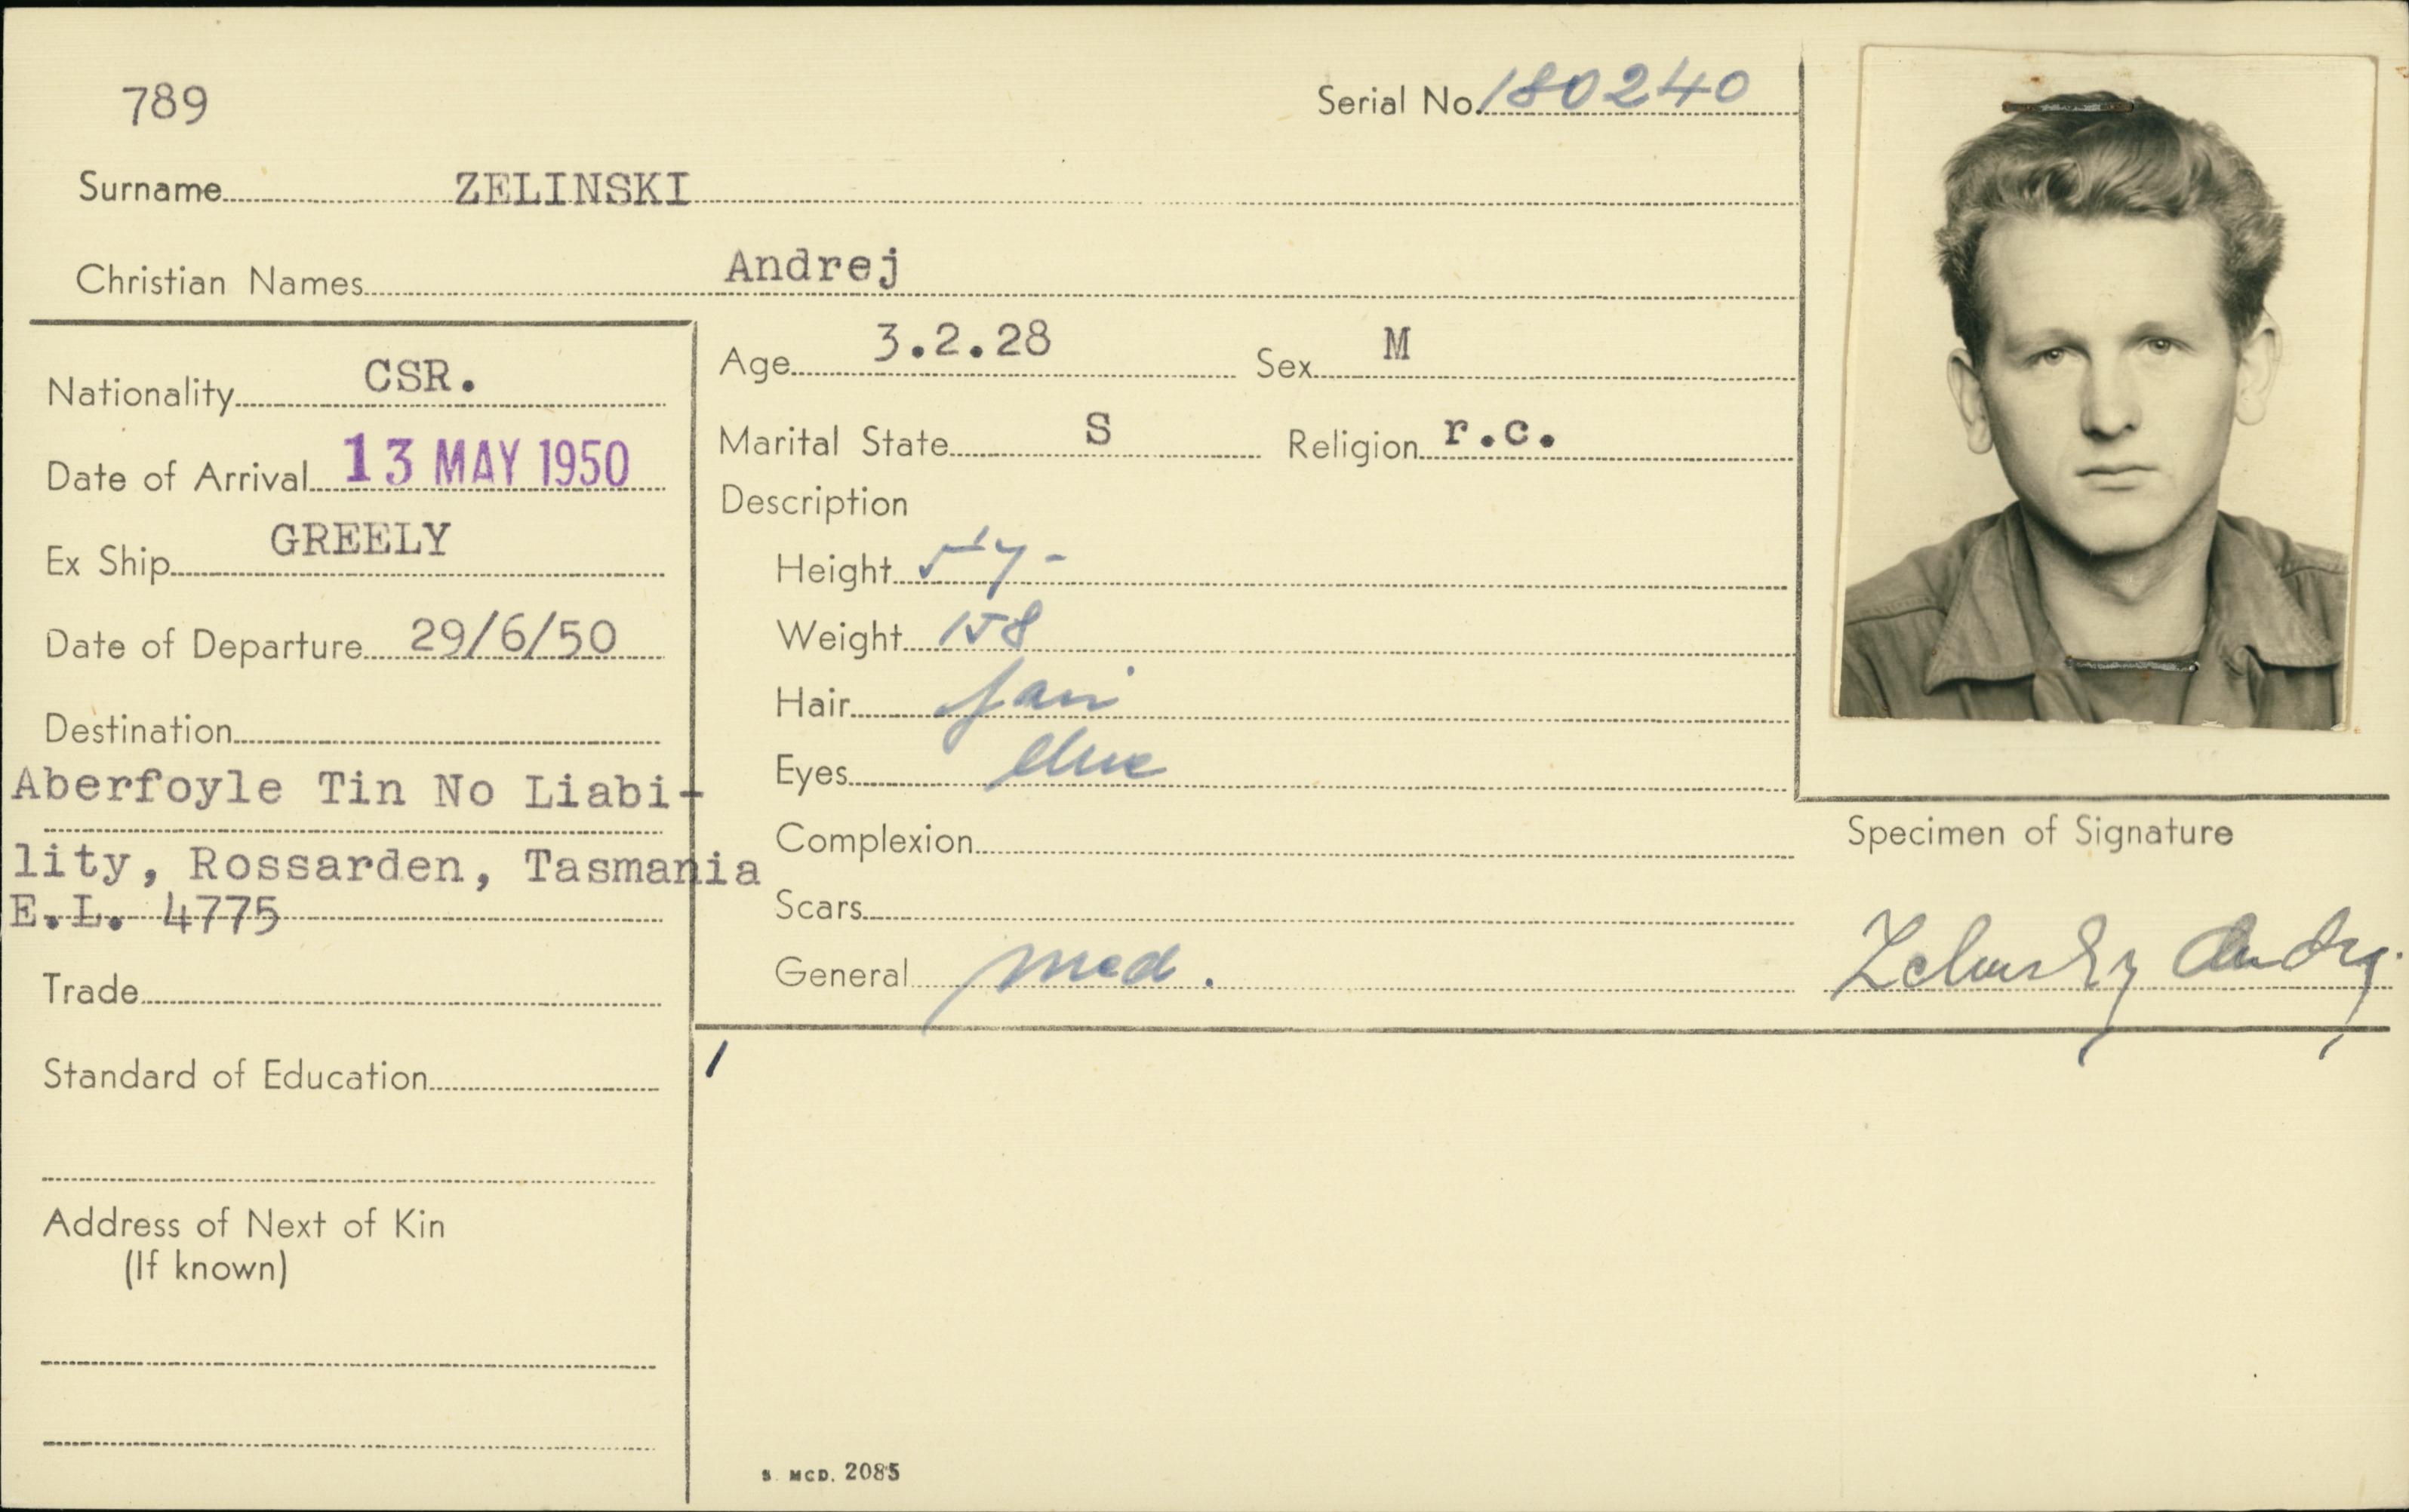 789
Serial No. 180240
Surname ZELINSKI
Christian Names Andrej
Nationality CSR.
Date of Arrival 13 MAY 1950
Ex Ship GREELY
Date of Departure 29/6/50
Destination
Aberfoyle Tin No Liabi-
lity, Rossarden, Tasmania
E.L. 4775
Trade
Standard of Education
Address of Next of Kin
(If known)
Age 3.2.28 Sex M
Marital State S Religion r.c.
Description
Height 5'7-
Weight 158
Hair fair
Eyes blue
Complexion
Scars
General med.
Specimen of Signature
Zelinsky Andrej.
S. MCD. 2085